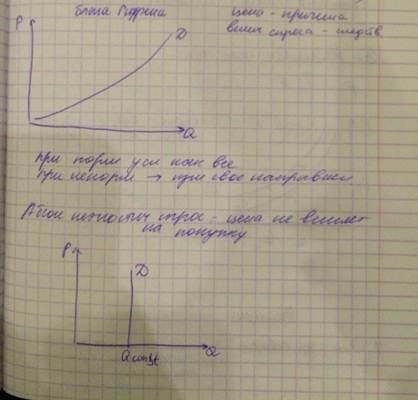 блага Гиффена
цена - причина
велич спроса - следств
P
D
Q
при норм усл как все
при ненорм → при свое направлен
Абсол неэласт спрос - цена не влияет
на покупку
P
D
Q const
Q